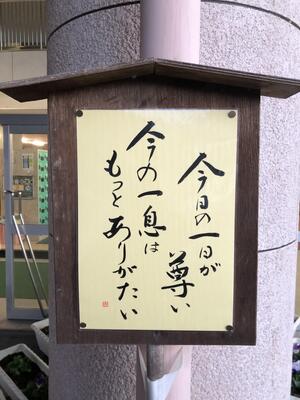 今日の一日が
尊い
今の一息は
もっと ありがたい